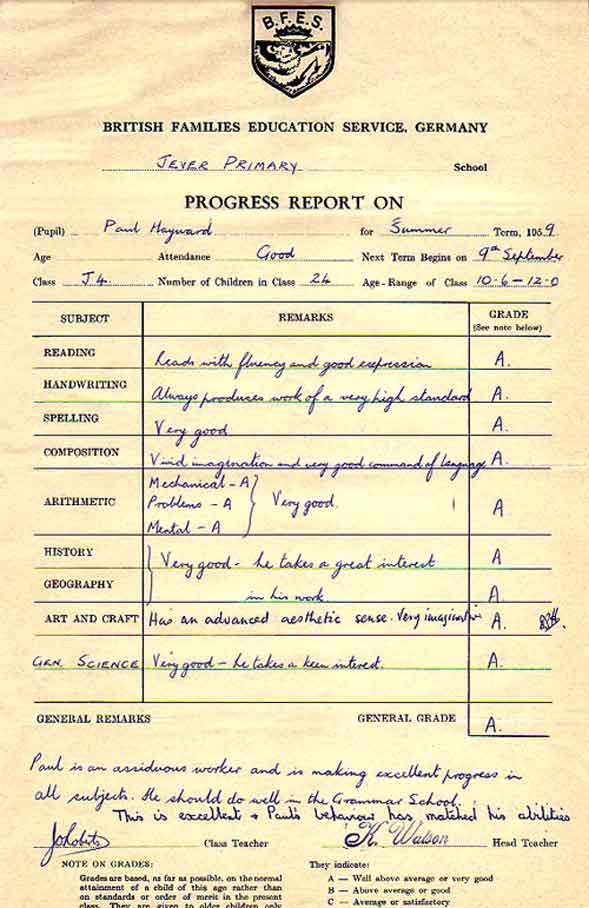 B.F.E.S.
BRITISH FAMILIES EDUCATION SERVICE, GERMANY
JEVER PRIMARY School
PROGRESS REPORT ON
(Pupil) Paul Hayward for Summer Term, 1959
Age Attendance Good Next Term Begins on 9th September
Class J4. Number of Children in Class 24 Age-Range of Class 10·6 – 12·0
SUBJECT REMARKS GRADE
(See note below)
READING Reads with fluency and good expression A.
HANDWRITING Always produces work of a very high standard A.
SPELLING Very good A.
COMPOSITION Vivid imagination and very good command of language A.
Mechanical – A
ARITHMETIC Problems – A Very good. A
Mental – A
HISTORY Very good – he takes a great interest A
GEOGRAPHY in his work. A.
ART AND CRAFT Has an advanced aesthetic sense. Very imaginative A.
GEN. SCIENCE Very good – he takes a keen interest. A.
GENERAL REMARKS GENERAL GRADE A.
Paul is an assiduous worker and is making excellent progress in
all subjects. He should do well in the Grammar School.
This is excellent + Paul's behaviour has matched his abilities
JoRoberts Class Teacher K. Watson Head Teacher
NOTE ON GRADES: They indicate:
Grades are based, as far as possible, on the normal A — Well above average or very good
attainment of a child of this age rather than B — Above average or good
on standards or order of merit in the present C — Average or satisfactory
class. They are given to older children only